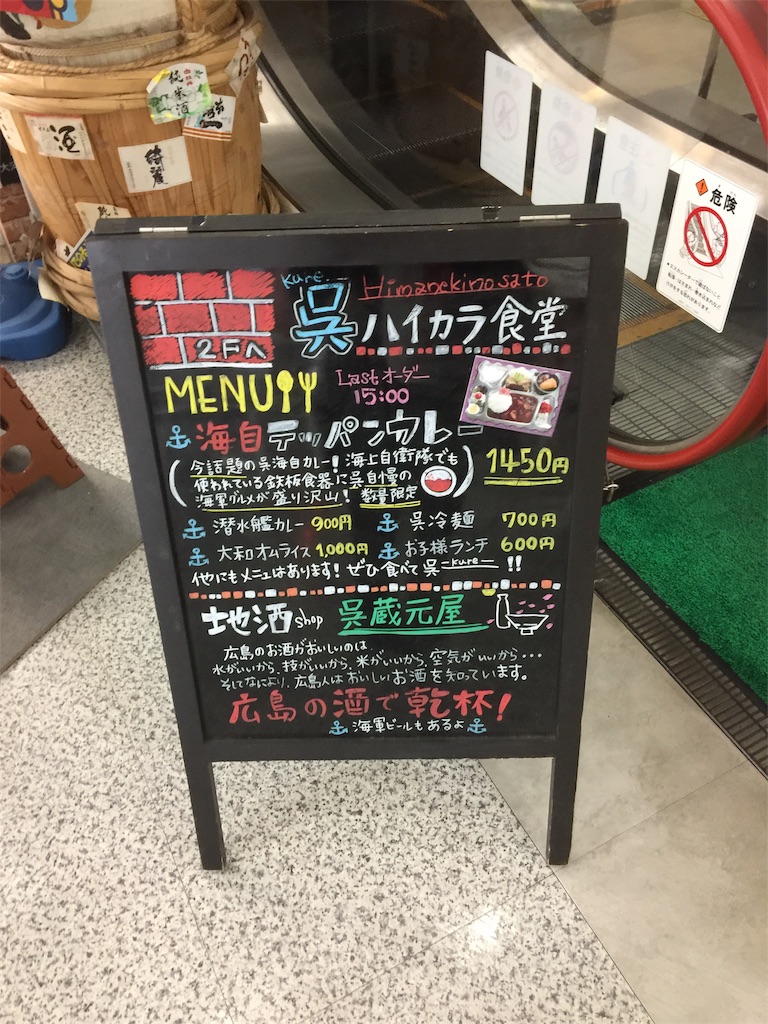 純米酒
酒
綺麗
危険
Kure
Himanekinosato
呉ハイカラ食堂
2Fへ
MENU
Lastオーダー
15:00
海自テッパンカレー
1450円
(今話題の呉海自カレー!海上自衛隊でも
使われている鉄板食器に呉自慢の
海軍グルメが盛り沢山!数量限定)
潜水艦カレー 900円
呉冷麺 700円
大和オムライス 1,000円
お子様ランチ 600円
他にもメニューはあります!ぜひ食べて呉-kure-!!
地酒shop 呉蔵元屋
広島のお酒がおいしいのは
水がいいから、技がいいから、米がいいから、空気がいいから・・・
そしてなにより、広島人はおいしいお酒を知っています。
広島の酒で乾杯!
海軍ビールもあるよ